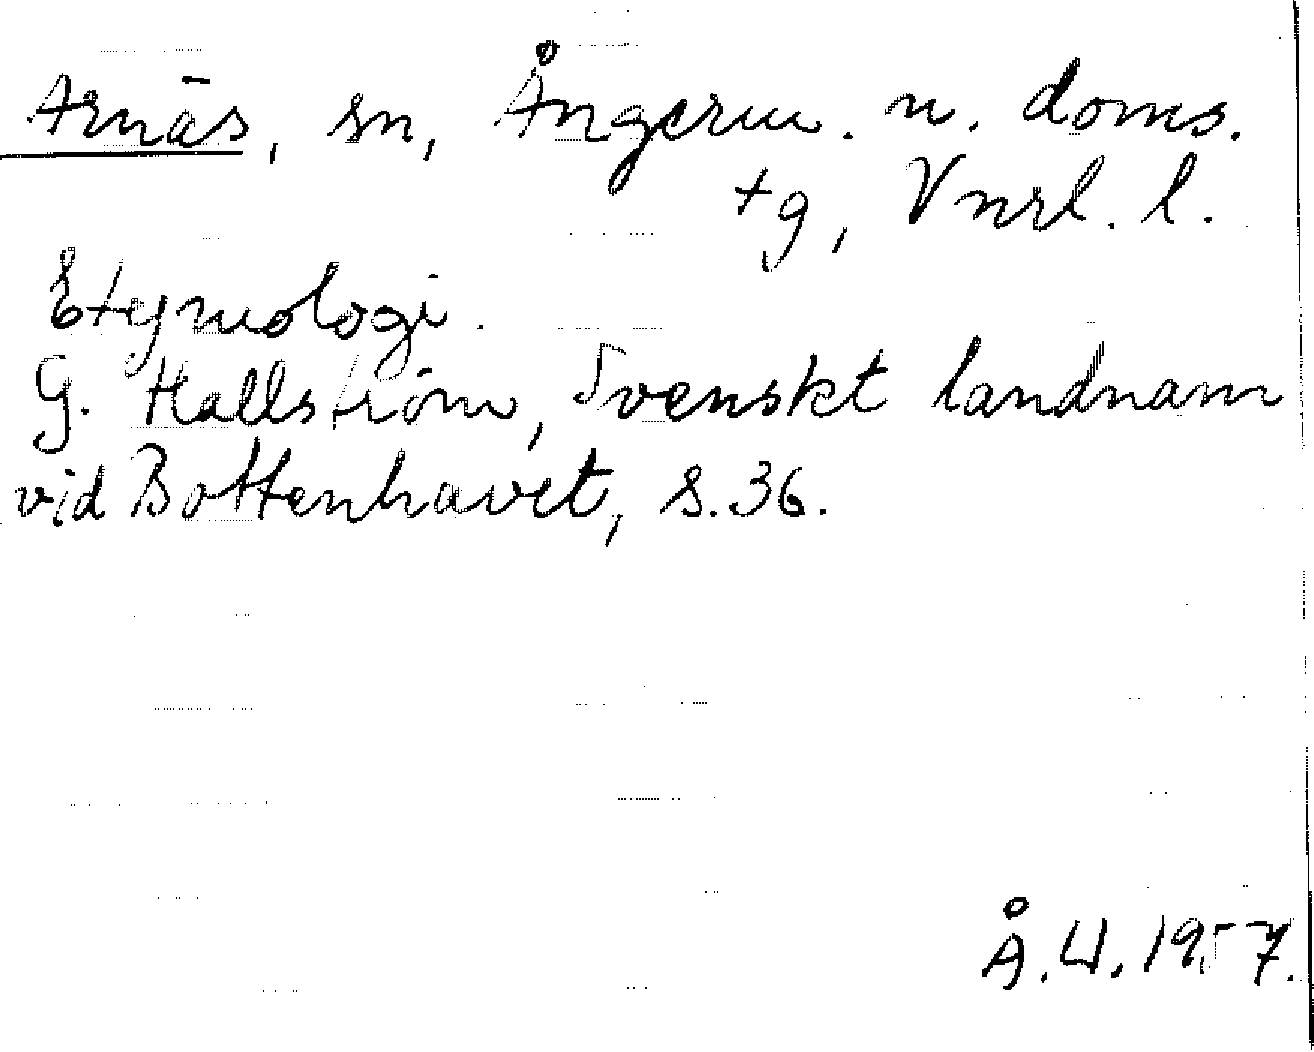 Arnäs, sn, Ångerm. n. doms.
tg, Vnrl. l.
Etymologi.
G. Hallström, Svenskt landnam
vid Bottenhavet, s. 36.
Å. U. 1957.